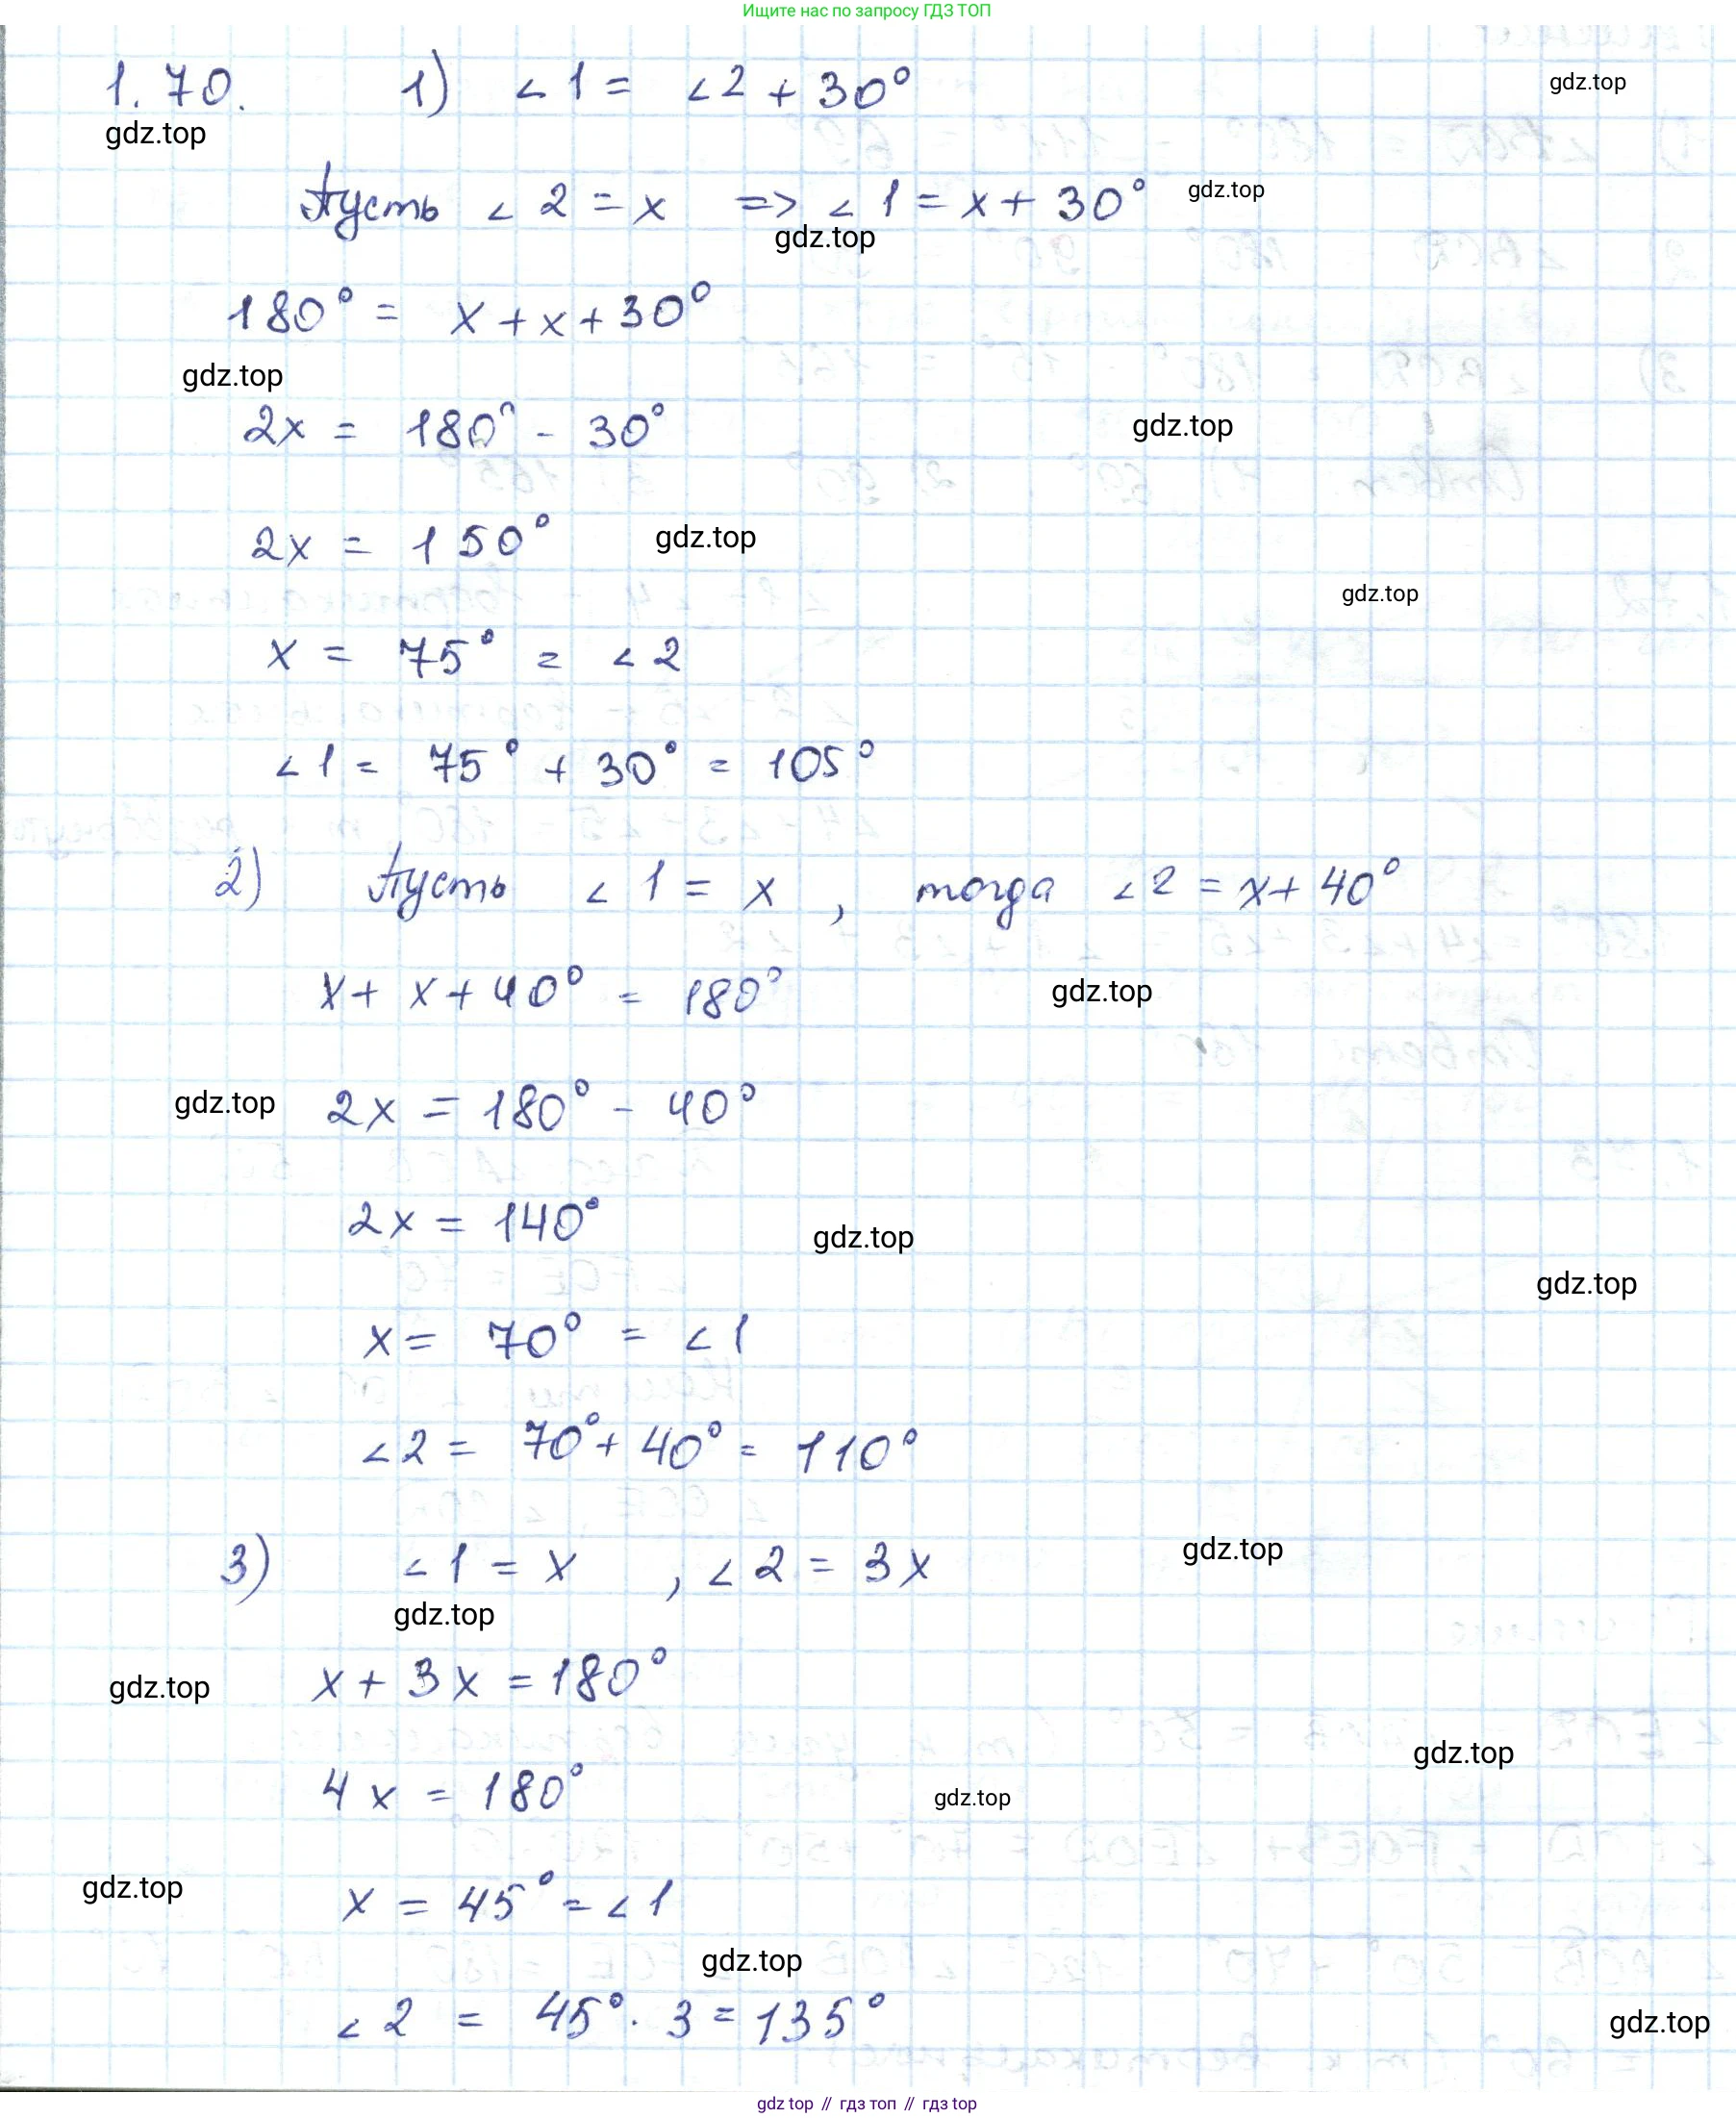 Ищите нас по запросу ГДЗ ТОП
1.70. 1) ∠1 = ∠2 + 30°
gdz.top
gdz.top
Пусть ∠2 = x => ∠1 = x + 30°
gdz.top
gdz.top
180° = x + x + 30°
gdz.top
2x = 180° - 30°
gdz.top
2x = 150°
gdz.top
gdz.top
x = 75° = ∠2
∠1 = 75° + 30° = 105°
2) Пусть ∠1 = x, тогда ∠2 = x + 40°
x + x + 40° = 180°
gdz.top
gdz.top
2x = 180° - 40°
2x = 140°
gdz.top
gdz.top
x = 70° = ∠1
∠2 = 70° + 40° = 110°
3) ∠1 = x, ∠2 = 3x
gdz.top
gdz.top
x + 3x = 180°
gdz.top
gdz.top
4x = 180°
gdz.top
gdz.top
x = 45° = ∠1
gdz.top
∠2 = 45° · 3 = 135°
gdz.top
gdz top // гдз топ // гдз top